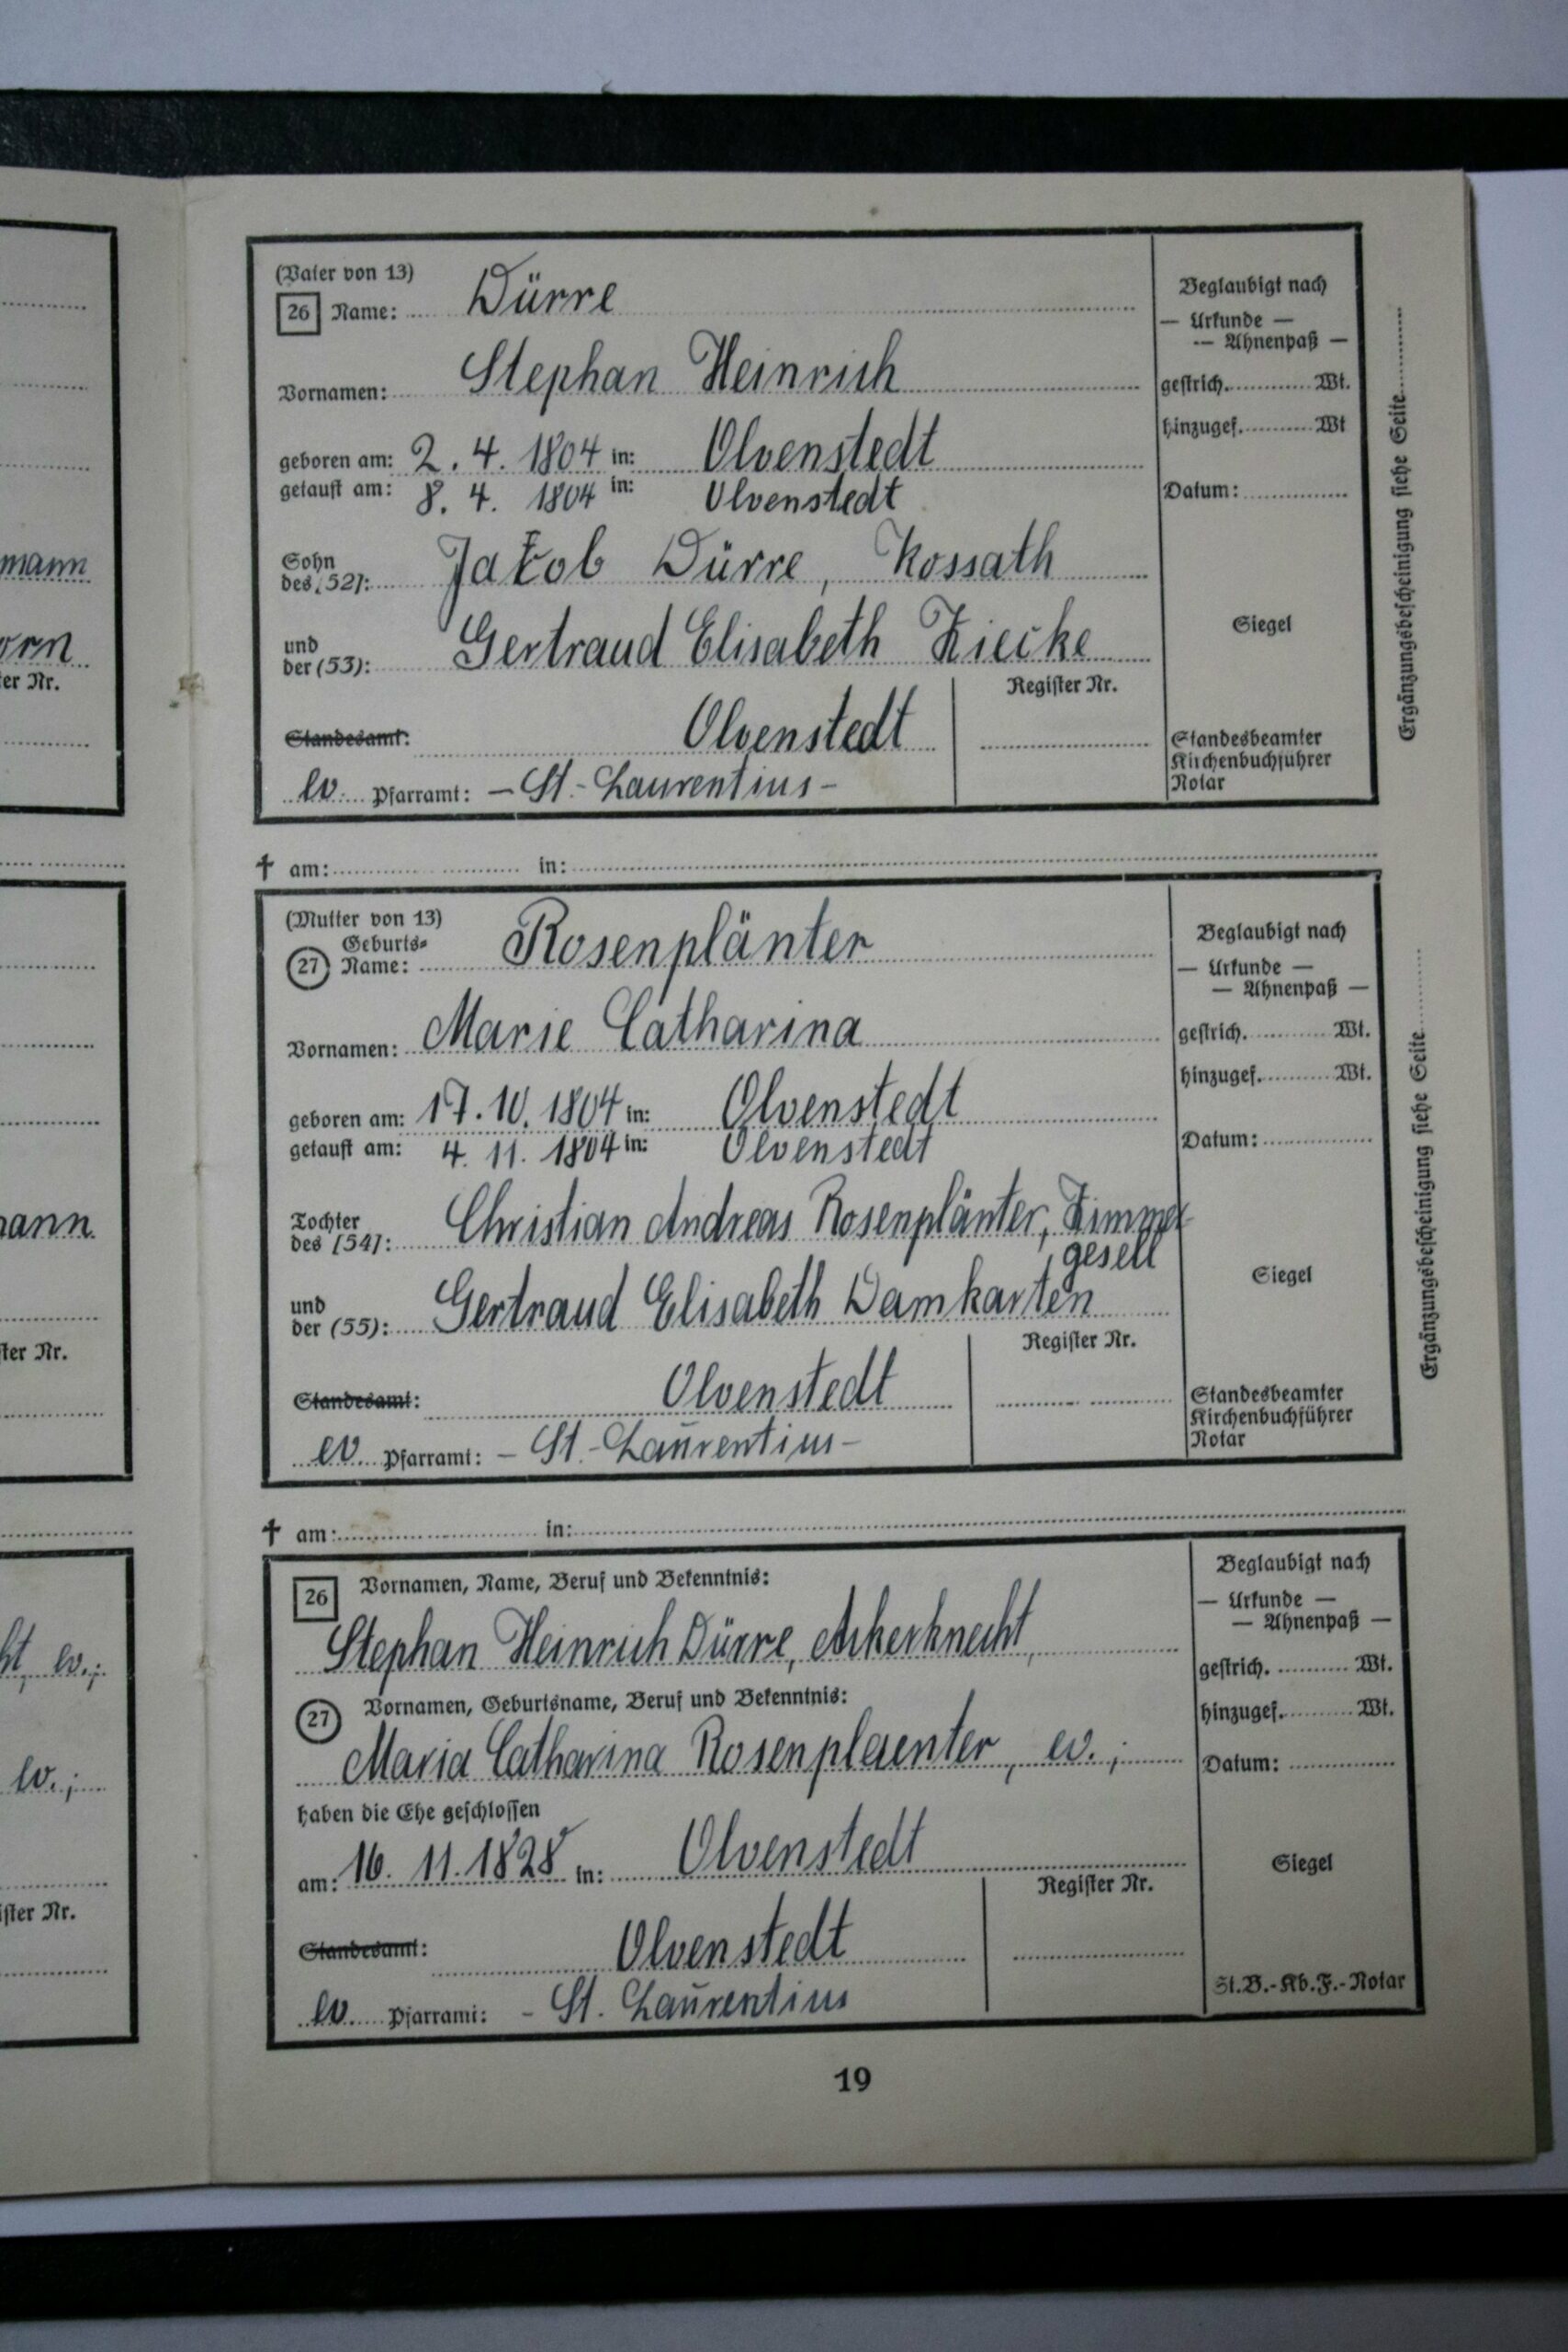 mann
orn
er Nr.
hann
ter Nr.
ht, ev.;
ev.;
ister Nr.
(Vater von 13)
26 Name: Dürre
Vornamen: Stephan Heinrich
geboren am: 2. 4. 1804 in: Olvenstedt
getauft am: 8. 4. 1804 in: Olvenstedt
Sohn
des (52): Jakob Dürre, Kossath
und
der (53): Gertraud Elisabeth Ziecke
Register Nr.
Standesamt: Olvenstedt
ev. Pfarramt: – St.-Laurentius –
Beglaubigt nach
— Urkunde —
— Ahnenpaß —
gestrich. Wt.
hinzugef. Wt
Datum:
Siegel
Standesbeamter
Kirchenbuchführer
Notar
Ergänzungsbescheinigung siehe Seite
† am: in:
(Mutter von 13)
Geburts-
27 Name: Rosenplänter
Vornamen: Marie Catharina
geboren am: 17. 10. 1804 in: Olvenstedt
getauft am: 4. 11. 1804 in: Olvenstedt
Tochter
des (54): Christian Andreas Rosenplänter, Zimmer
gesell
und
der (55): Gertraud Elisabeth Damkarten
Register Nr.
Standesamt: Olvenstedt
ev. Pfarramt: – St.-Laurentius –
Beglaubigt nach
— Urkunde —
— Ahnenpaß —
gestrich. Wt.
hinzugef. Wt.
Datum:
Siegel
Standesbeamter
Kirchenbuchführer
Notar
Ergänzungsbescheinigung siehe Seite
† am: in:
26 Vornamen, Name, Beruf und Bekenntnis:
Stephan Heinrich Dürre, Ackerknecht,
27 Vornamen, Geburtsname, Beruf und Bekenntnis:
Maria Catharina Rosenplaenter, ev.;
haben die Ehe geschlossen
am: 16. 11. 1828 in: Olvenstedt
Register Nr.
Standesamt: Olvenstedt
ev. Pfarramt: - St. Laurentius
Beglaubigt nach
— Urkunde —
— Ahnenpaß —
gestrich. Wt.
hinzugef. Wt.
Datum:
Siegel
St.B.-Kb.F.-Notar
19